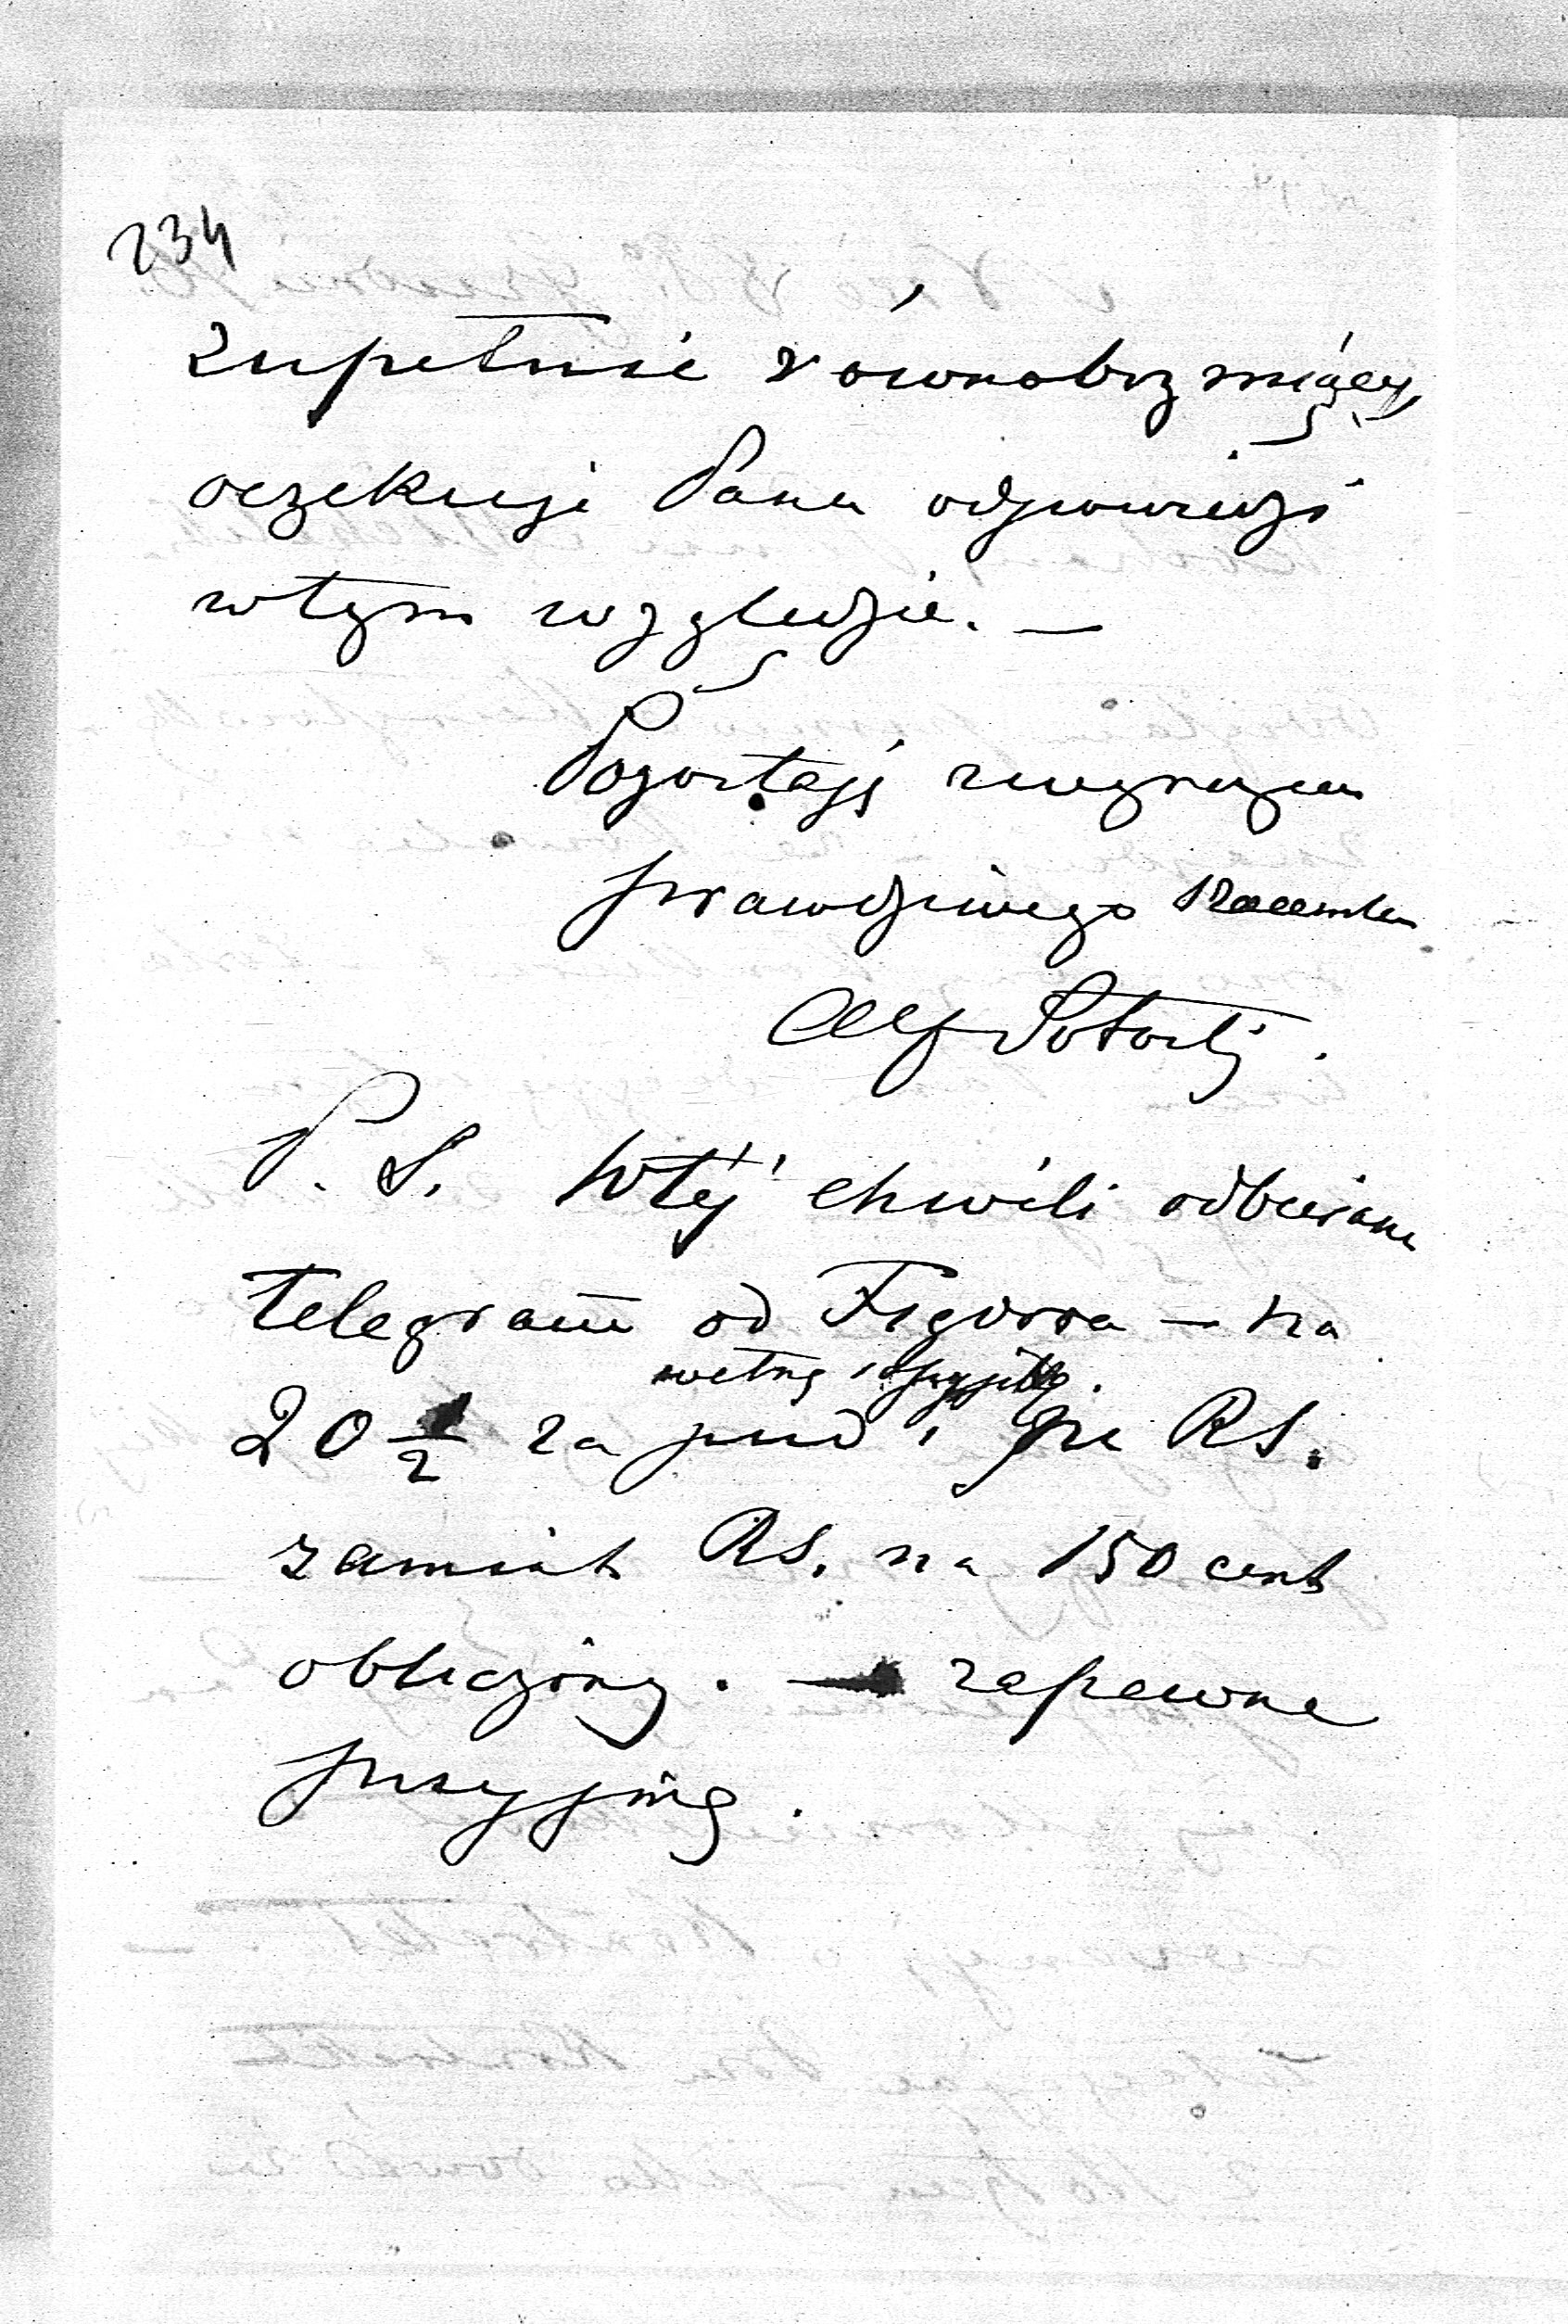 234
zupełnie równobrzmiący,
oczekuję Pana odpowiedzi
w tym względzie. —
Pozostaję z
prawdziwego szacunku
Alf Potocki.
P. S. W téj chwili odbieram
telegram od Figdora — na
wełnę
20 1/2 za pud i RS.
zamiast RS. na 150 cent
obliczony. — zapewne
przyjmę.